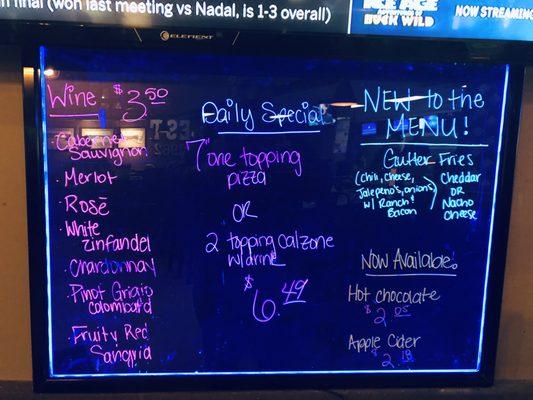 final (won last meeting vs Nadal, is 1-3 overall)
BUCK WILD
NOW STREAMING
ELEMENT
Wine $3.50
Cabernet
Sauvignon
· Merlot
· Rosé
· White
Zinfandel
· Chardonnay
· Pinot Grigio
colombard
· Fruity Red
Sangria
Daily Special
7" one topping
pizza
OR
2 topping Calzone
w/drink
$6.49
NEW to the
MENU!
Gutter Fries
(chili, cheese,
Jalepeno's, onions)
w/ Ranch &
Bacon
Cheddar
OR
Nacho
Cheese
Now Available:
Hot chocolate
$2.05
Apple Cider
$2.18